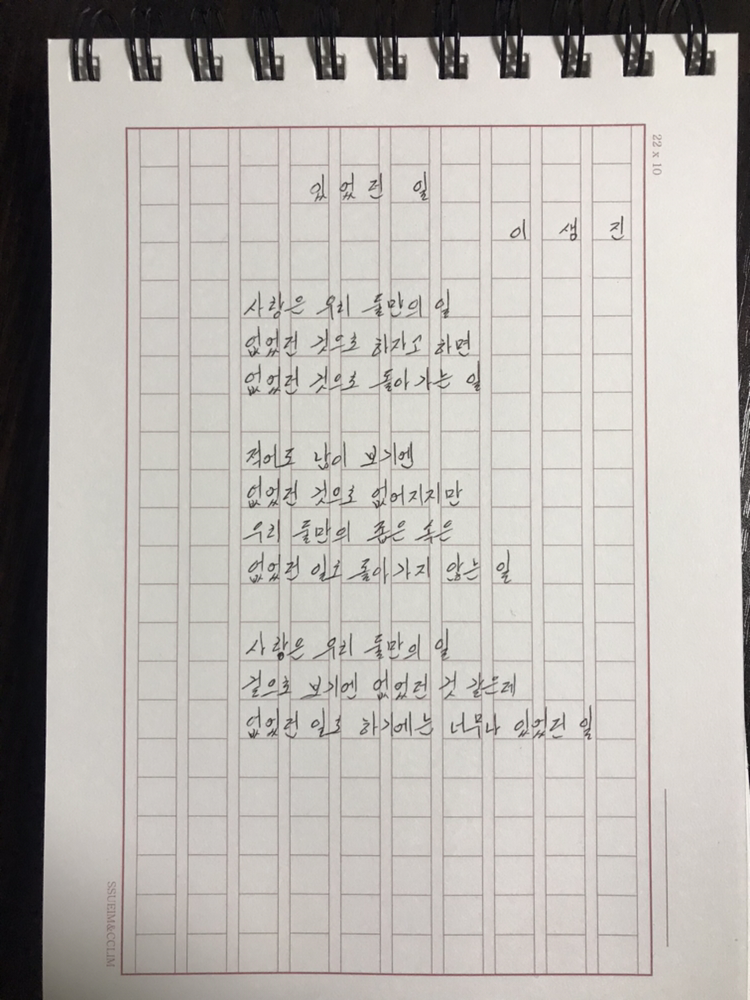 22 x 10
있었던 일
이 생 진
사랑은 우리 둘만의 일
없었던 것으로 하자고 하면
없었던 것으로 돌아가는 일
적어도 남이 보기엔
없었던 것으로 없어지지만
우리 둘만의 좁은 속은
없었던 일로 돌아가지 않는 일
사랑은 우리 둘만의 일
겉으로 보기엔 없었던 것 같은데
없었던 일로 하기에는 너무나 있었던 일
SSUEIM&CCLIM